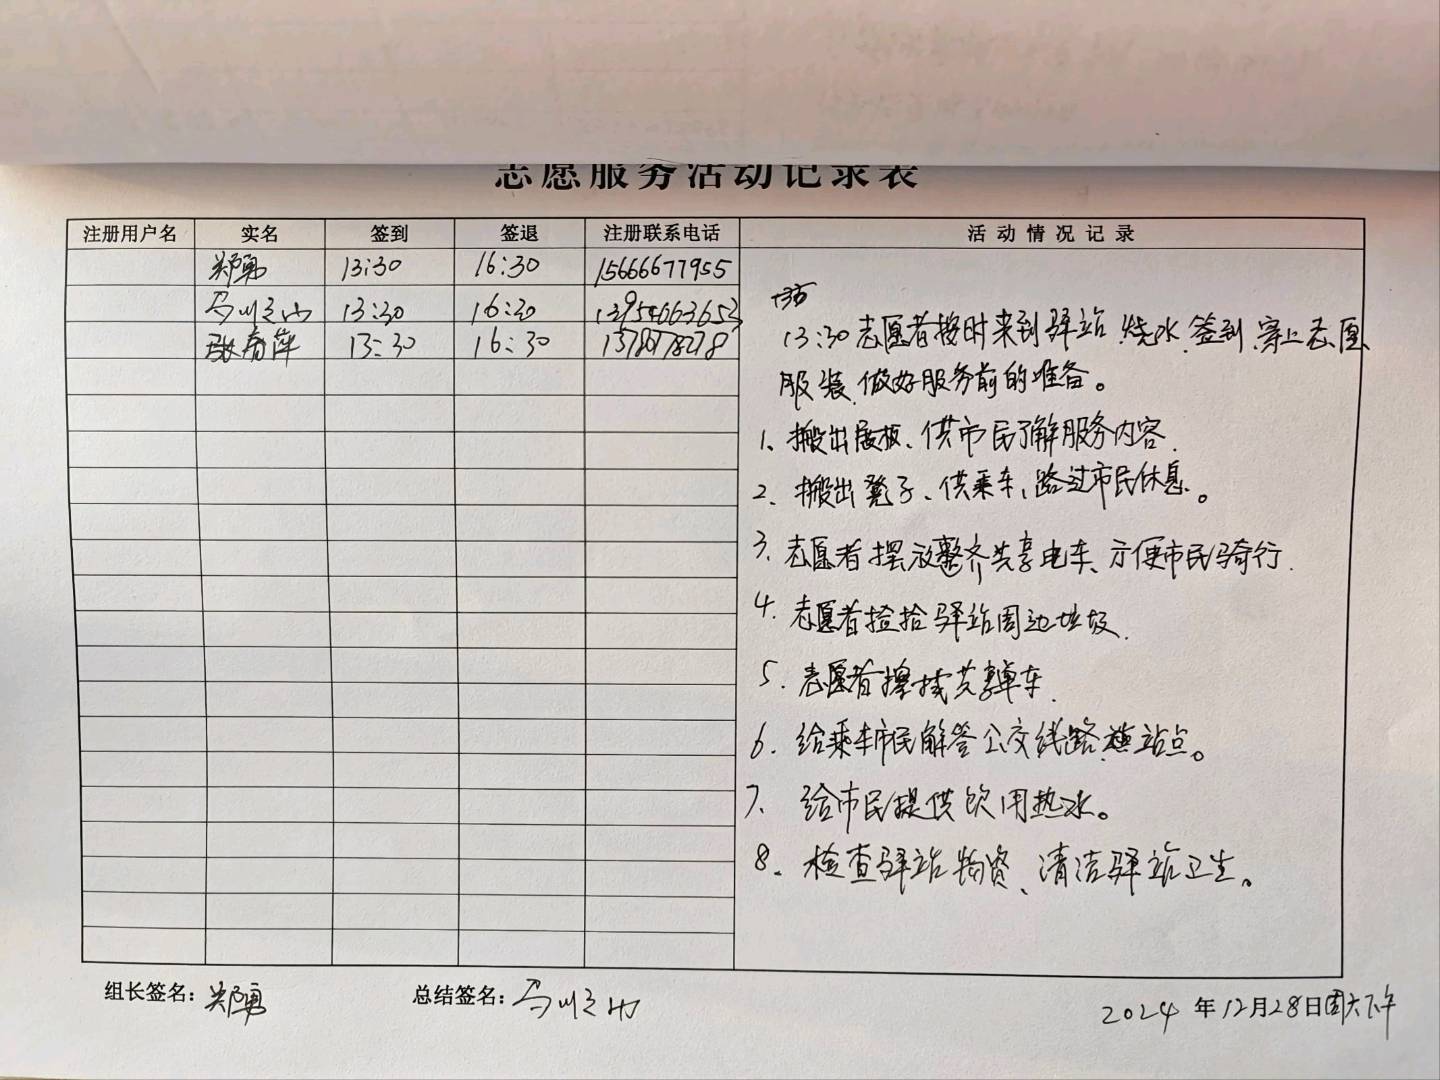 志愿服务活动记录表
注册用户名 实名 签到 签退 注册联系电话 活动情况记录
郑勇 13:30 16:30 15666677955
13:30 16:30 13954663653
张春萍 13:30 16:30
13:30志愿者按时来到驿站、烧水、签到、穿上志愿
服装、做好服务前的准备。
1、搬出展板、供市民了解服务内容.
2、搬出凳子、供乘车、路过市民休息。
3、志愿者摆放整齐共享电车、方便市民骑行.
4、志愿者捡拾驿站周边垃圾.
5.志愿者擦拭共享单车.
6.给乘车市民解答公交线路、站点。
7、给市民提供饮用热水。
8、检查驿站物资、清洁驿站卫生。
组长签名：郑勇 总结签名： 2024年12月28日周六下午